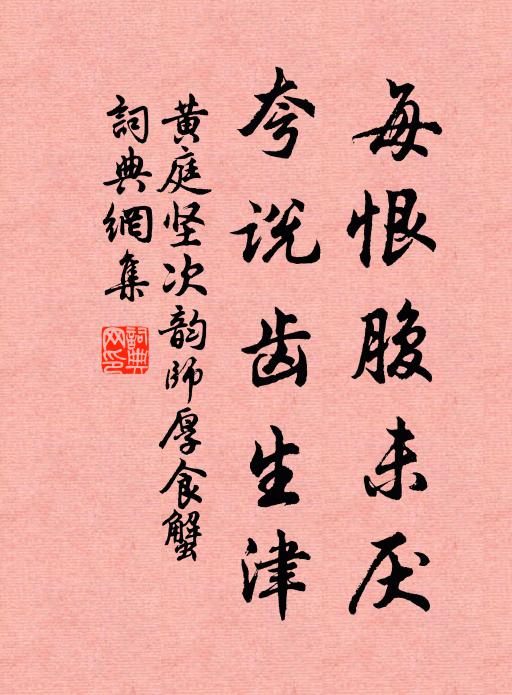 每恨腹未厌
夸说齿生津
黄庭坚次韵師厚食蟹
詞典網集
詞典網印